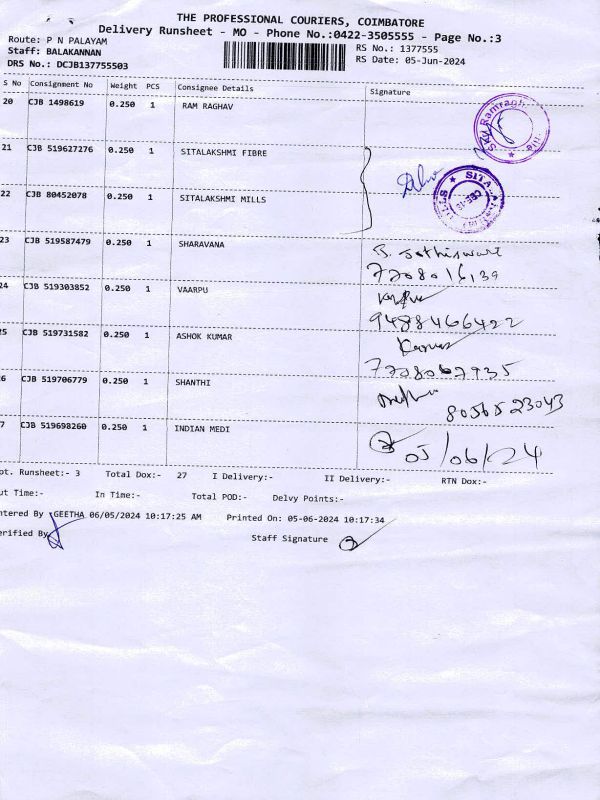 THE PROFESSIONAL COURIERS, COIMBATORE
Delivery Runsheet - MO - Phone No.:0422-3505555 - Page No.:3
Route: P N PALAYAM
Staff: BALAKANNAN
DRS No.: DCJB137755503
RS No.: 1377555
RS Date: 05-Jun-2024
S No Consignment No Weight PCS Consignee Details Signature
20 CJB 1498619 0.250 1 RAM RAGHAV
21 CJB 519627276 0.250 1 SITALAKSHMI FIBRE
22 CJB 80452078 0.250 1 SITALAKSHMI MILLS
SITA
CBE-15
23 CJB 519587479 0.250 1 SHARAVANA
7708016139
24 CJB 519303852 0.250 1 VAARPU
9488466422
25 CJB 519731582 0.250 1 ASHOK KUMAR
7708067935
6 CJB 519706779 0.250 1 SHANTHI
8056523043
7 CJB 519698260 0.250 1 INDIAN MEDI
05/06/24
ot. Runsheet:- 3 Total Dox:- 27 I Delivery:- II Delivery:- RTN Dox:-
ut Time:- In Time:- Total POD:- Delvy Points:-
ntered By GEETHA 06/05/2024 10:17:25 AM Printed On: 05-06-2024 10:17:34
erified By
Staff Signature